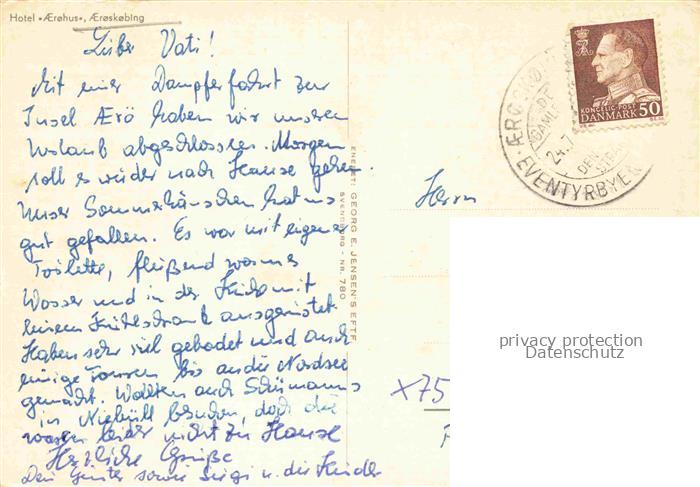 Hotel »Ærøhus«, Ærøskøbing
Lieber Vati!
Mit einer Dampferfahrt zur
Insel Ärö haben wir unseren
Urlaub abgeschlossen. Morgen
soll es wieder nach Hause gehen.
Unser Sommerhäuschen hat uns
gut gefallen. Es war mit eigener
Toilette, fließend warmes
Wasser und in der Küche mit
einem Kühlschrank ausgerüstet.
Haben sehr viel gebadet und auch
einige Touren bis an die Nordsee
gemacht. Wollten auch Schümanns
in Niebüll besuchen, doch die
waren leider nicht zu Hause
Herzliche Grüße
Dein Günter sowie Siegi u. die Kinder
ENERET: GEORG E. JENSEN'S EFTF.
SVENDBORG - NR. 780
Herrn
KONGELIG POST
DANMARK 50
ÆRØSKØ
DE
GAMLE
24.7
DEN
EVENTYRBYEN
x75
privacy protection
Datenschutz